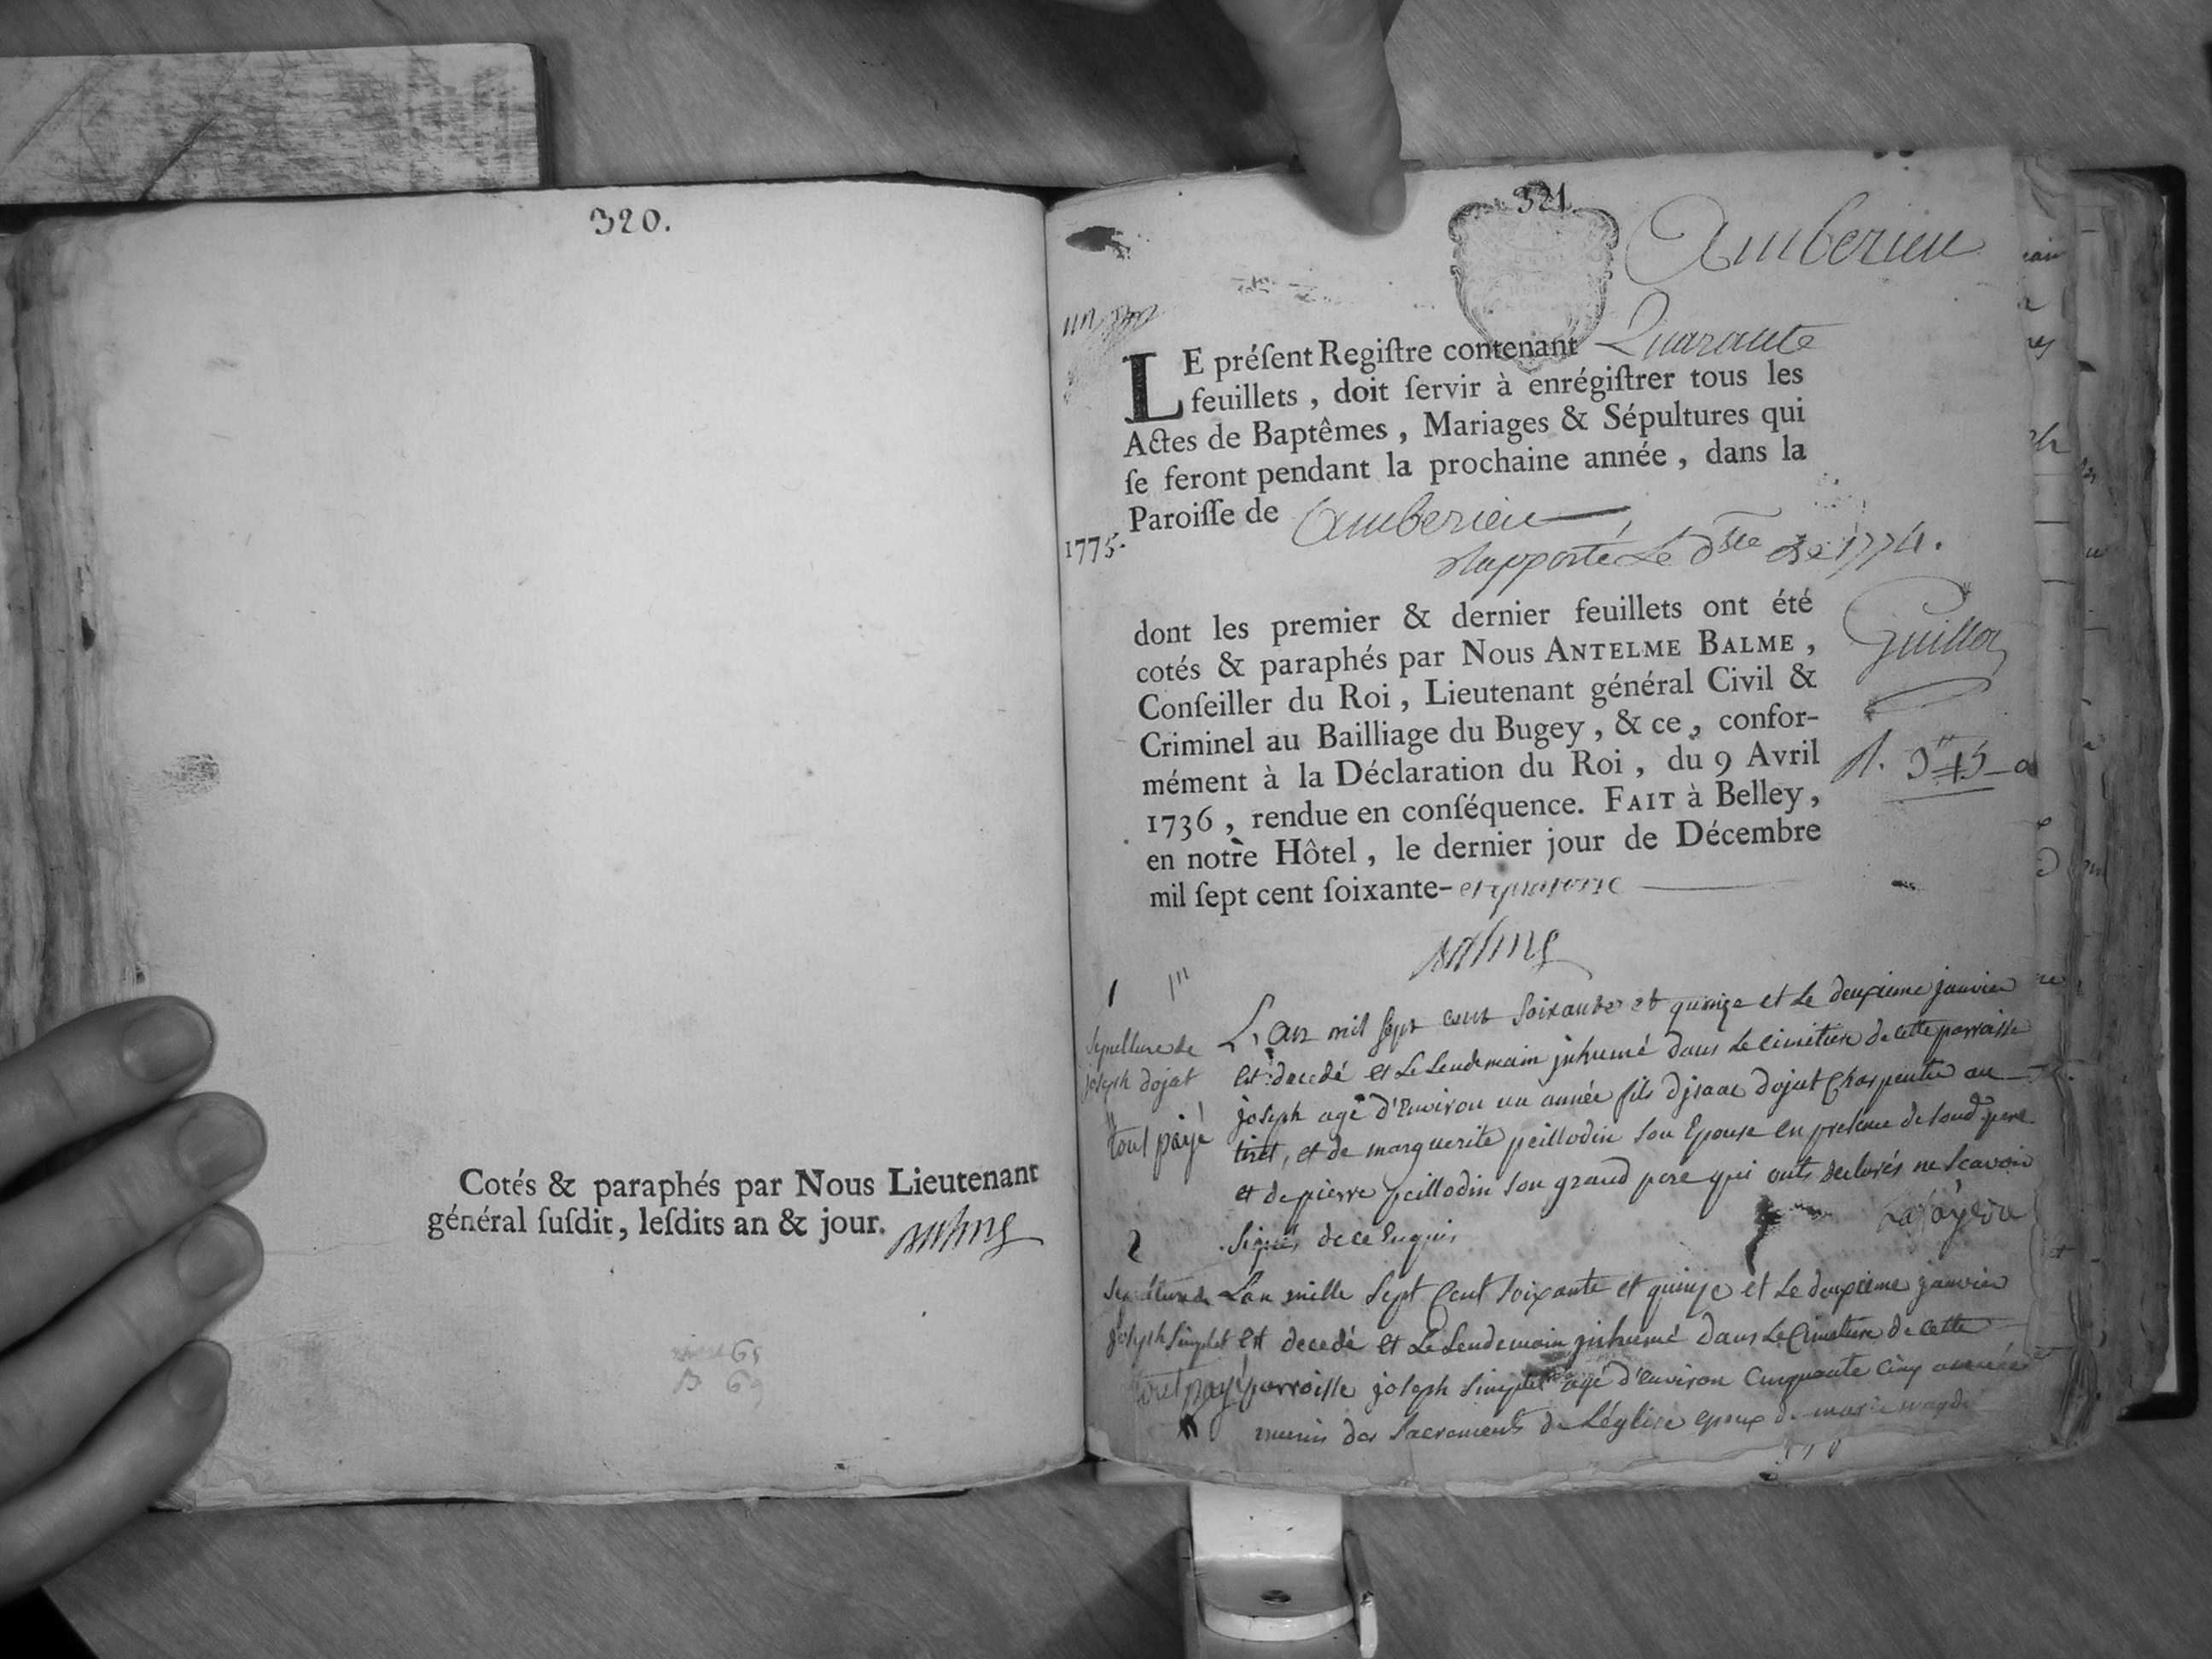 320.
Cotés & paraphés par Nous Lieutenant
général ſuſdit, leſdits an & jour.
321
Amberieu
LE préſent Regiſtre contenant Quarante
feuillets, doit ſervir à enrégiſtrer tous les
Actes de Baptêmes, Mariages & Sépultures qui
ſe feront pendant la prochaine année, dans la
Paroiſſe de Amberieu
1775.
Rapporté Le 1774.
dont les premier & dernier feuillets ont été
cotés & paraphés par Nous ANTELME BALME,
Conſeiller du Roi, Lieutenant général Civil &
Criminel au Bailliage du Bugey, & ce, confor-
mément à la Déclaration du Roi, du 9 Avril
1736, rendue en conſéquence. FAIT à Belley,
en notre Hôtel, le dernier jour de Décembre
mil ſept cent ſoixante- et quatorze
Guillot
Balme
1
Sepulture de
joseph dojat
tout payé
L'an mil sept cent soixante et quinze et le deuxieme janvier
est decedé et le lendemain inhumé dans le cimetiere de cette parroisse
joseph agé d'environ un année fils d'isaac dojat charpentier au
tiret, et de marguerite peillodin son epouse en presence de son d pere
et de pierre peillodin son grand pere qui onts declarés ne scavoir
signer de ce enquis
2
Sepulture de
joseph Simplet
tout payé
L'an mille sept cent soixante et quinze et le deuxieme janvier
est decedé et le lendemain inhumé dans le cimetiere de cette
parroisse joseph Simplet agé d'environ cinquante cinq années
munis des sacrements de l'église epoux de marie